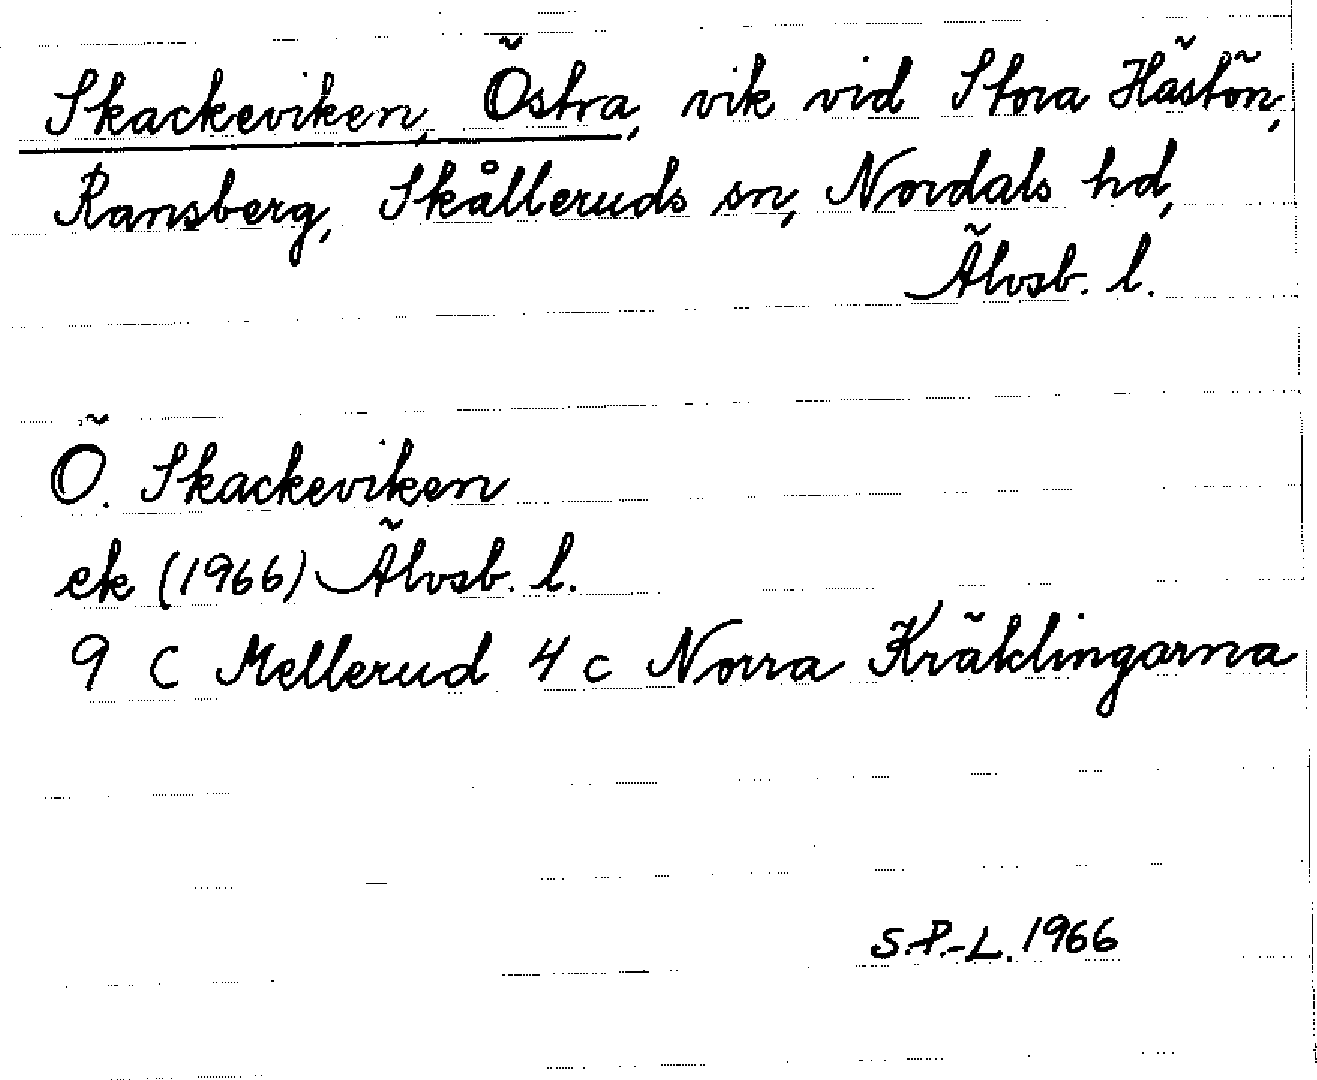 Skackeviken, Östra, vik vid Stora Hästön,
Ransberg, Skålleruds sn, Nordals hd,
Älvsb. l.
Ö. Skackeviken
ek (1966) Älvsb. l.
9 C Mellerud 4 c Norra Kräklingarna
S.P.-L. 1966